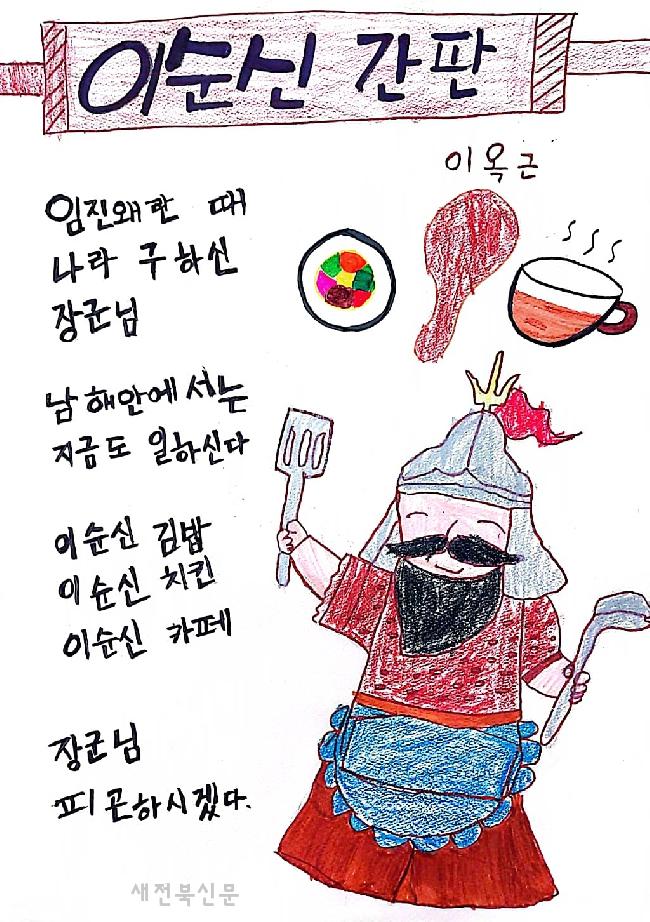 이순신 간판
이옥근
임진왜란 때
나라 구하신
장군님
남해안에서는
지금도 일하신다
이순신 김밥
이순신 치킨
이순신 카페
장군님
피곤하시겠다.
새전북신문